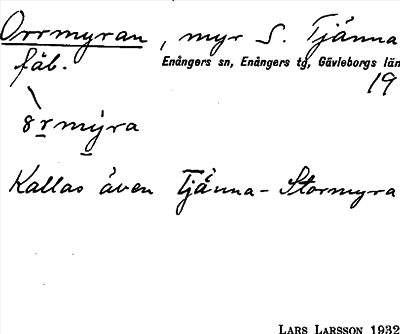 Orrmyran, myr S. Tjänna
fäb. Enångers sn, Enångers tg, Gävleborgs län
19
\
8rmýra
Kallas även Tjänna-Stormyra
LARS LARSSON 1932